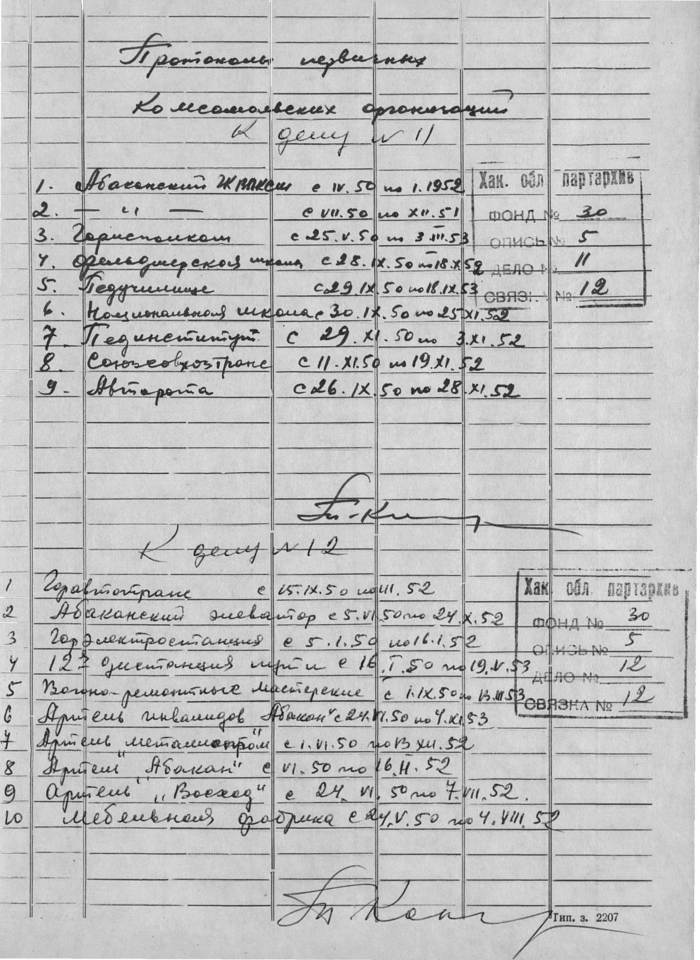 Протоколы первичных
комсомольских организаций
К делу № 11
1. Абаканский с IV.50 по I.1952
2. — " — с VII.50 по XII.51
3. Горисполком с 25.V.50 по 3.III.53
4. Фельдшерская школа с 28.IX.50 по 18.X.52
5. Педучилище с 29.IX.50 по 18.IX.53
6. Национальная школа с 30.IX.50 по 25.XI.52
7. Пединститут с 29.XI.50 по 3.XI.52
8. Союзсовхозтранс с 11.XI.50 по 19.XI.52
9. Авторота с 26.IX.50 по 28.XI.52
Хак. обл партархив
ФОНД № 30
ОПИСЬ № 5
ДЕЛО № 11
СВЯЗКА № 12
К делу № 12
1 Горавтотранс с 15.IX.50 по III.52
2 Абаканский элеватор с 5.VI.50 по 24.X.52
3 Горэлектростанция с 5.I.50 по 16.I.52
4 12я дистанция пути с 16.I.50 по 19.V.53
5 Вагоно-ремонтные мастерские с 1.IX.50 по 13.III.53
6 Артель инвалидов Абакан" с 24.VI.50 по 4.XI.53
7 Артель "металлопром" с 1.VI.50 по 13.XII.52
8 Артель "Абакан" с VI.50 по 16.II.52
9 Артель "Восход" с 24.VI.50 по 7.VII.52.
10 Мебельная фабрика с 24.V.50 по 4.VIII.52
Хак. обл. партархив
ФОНД № 30
ОПИСЬ № 5
ДЕЛО № 12
СВЯЗКА № 12
Тип. з. 2207